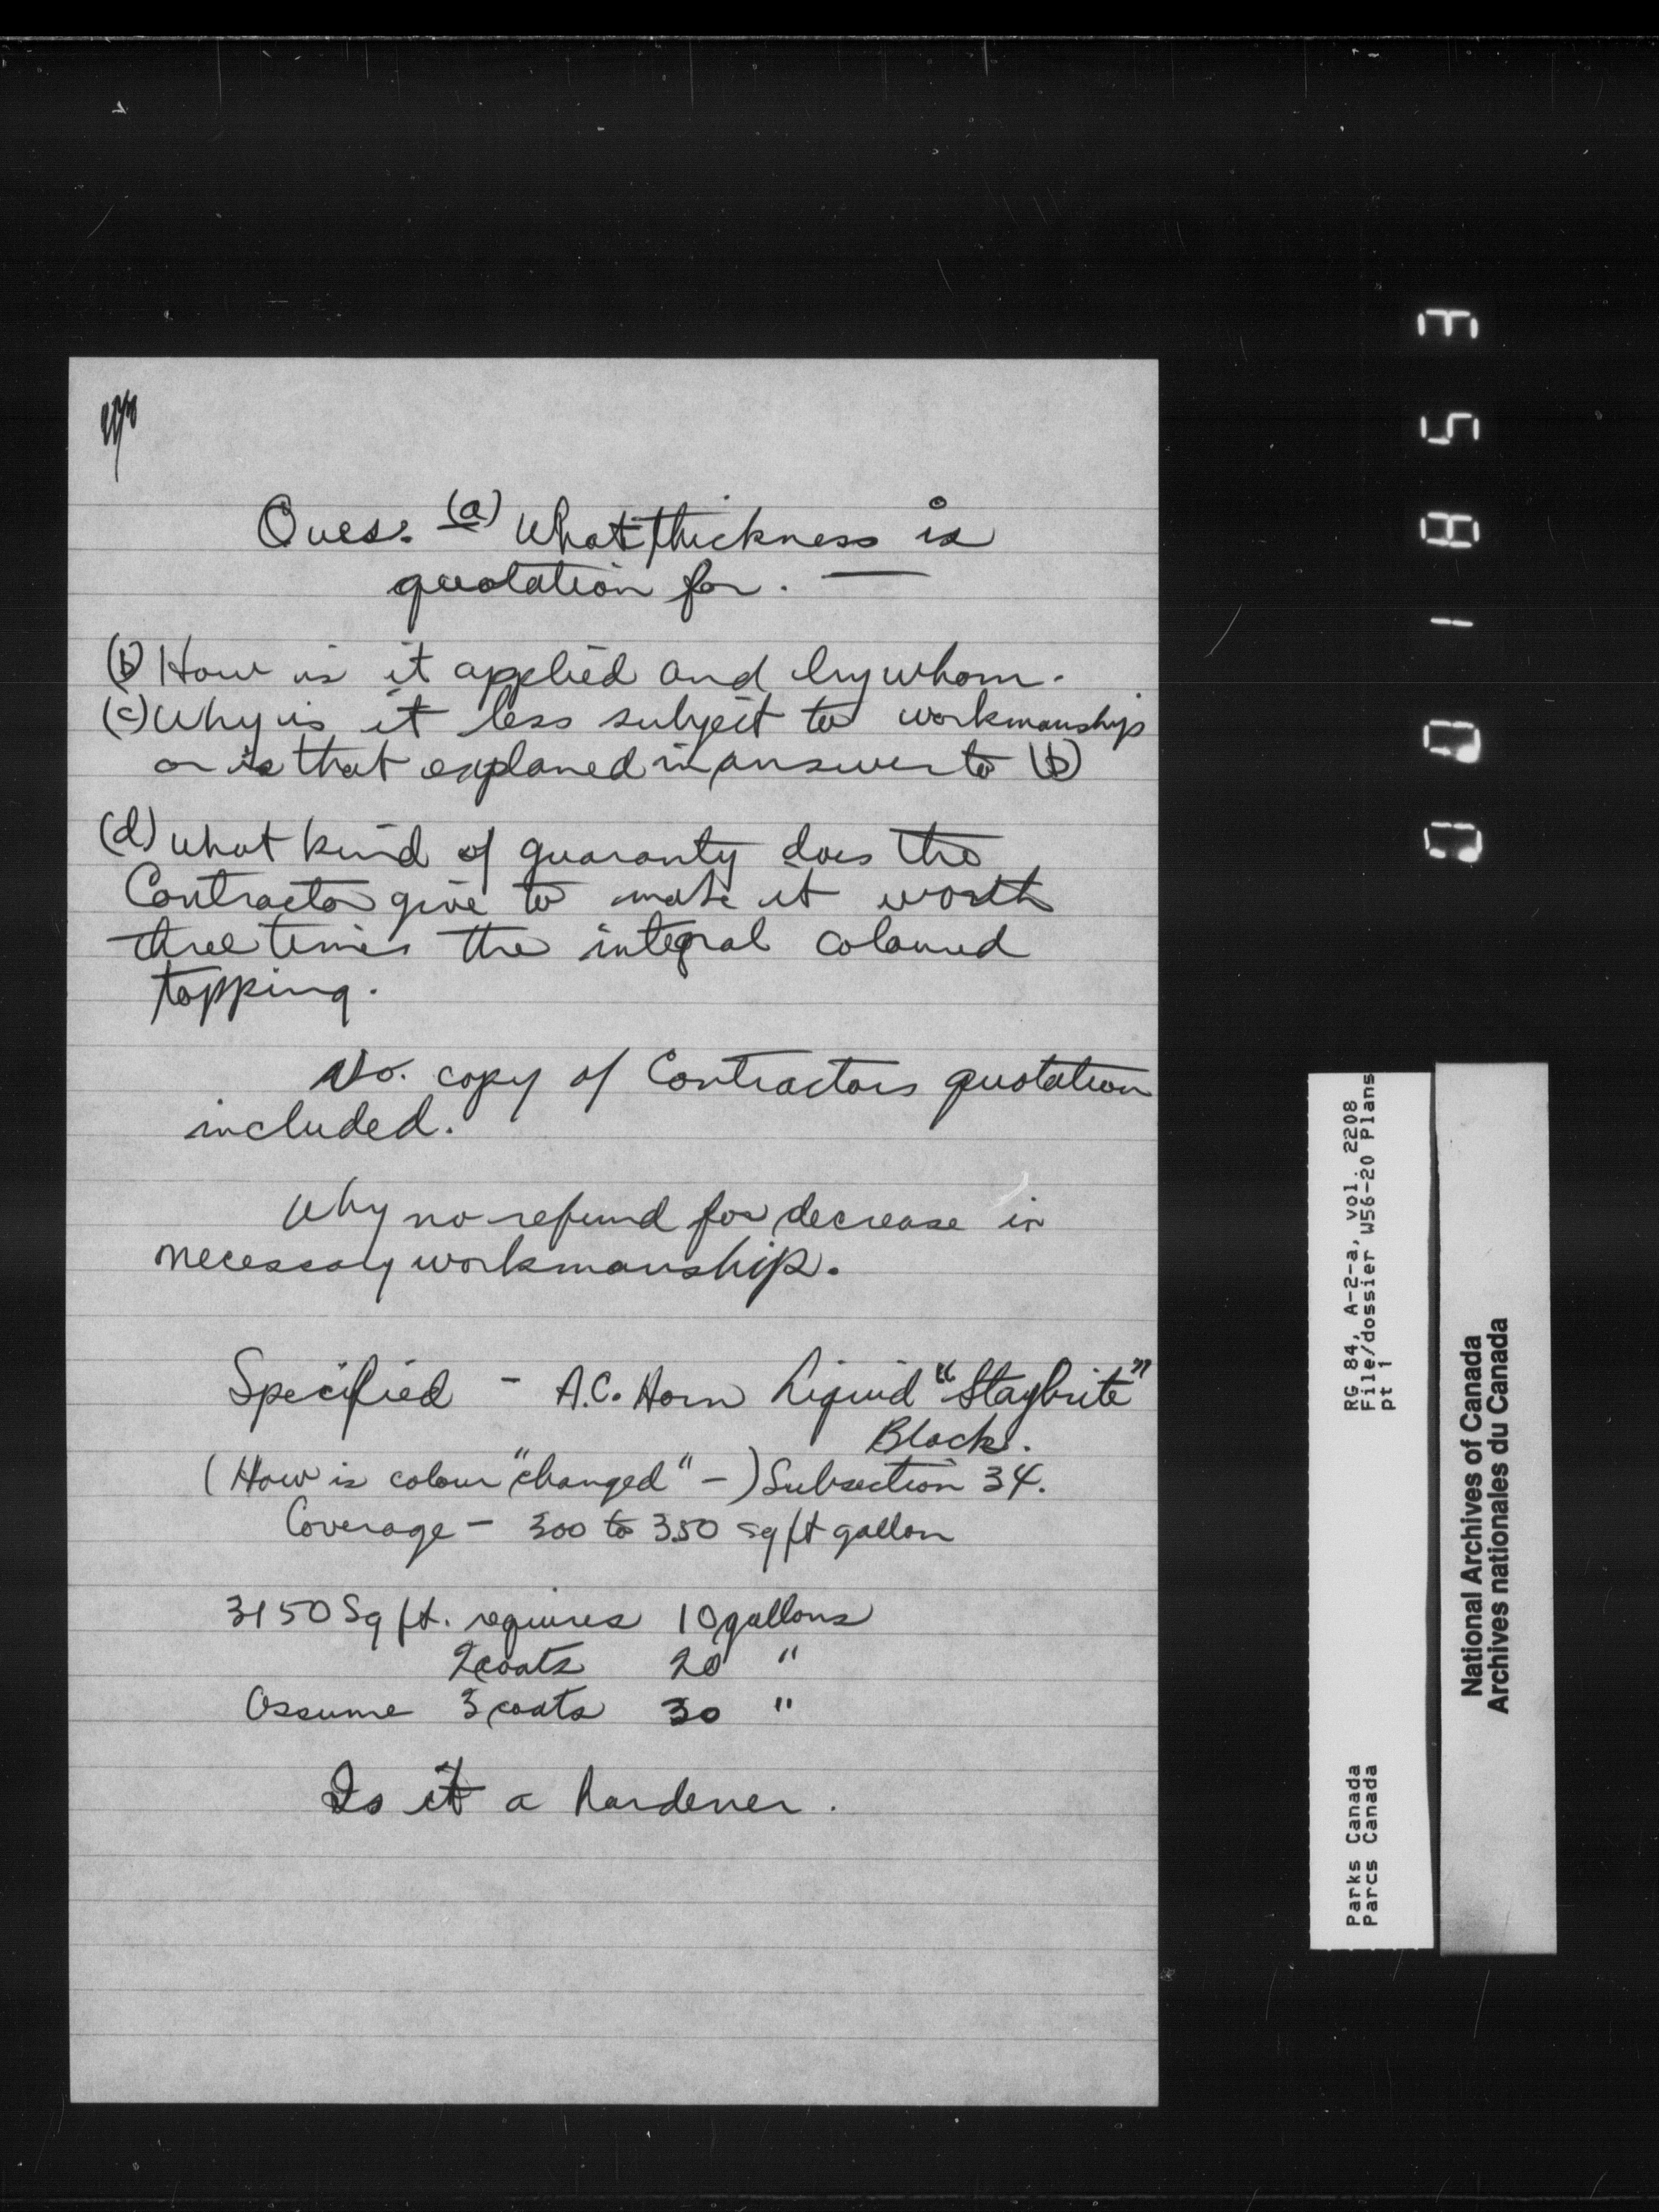 Ques. (a) What thickness is
quotation for. —
(b) How is it applied and by whom.
(c) Why is it less subject to workmanship
or is that explaned in answer to (b)
(d) What kind of guaranty does the
Contractor give to make it worth
three times the integral coloured
topping.
No. copy of Contractors quotation
included.
Why no refund for decrease in
necessary workmanship.
Specified - A.C. Horn Liquid "Staybrite"
Black.
(How is colour "changed" -) Subsection 34.
Coverage - 300 to 350 sq ft gallon
3150 Sq ft. requires 10 gallons
2 coats 20 "
Assume 3 coats 30 "
Is it a hardener.
001853
RG 84, A-2-a, vol. 2208
File/dossier W56-20 Plans
pt 1
Parks Canada
Parcs Canada
National Archives of Canada
Archives nationales du Canada